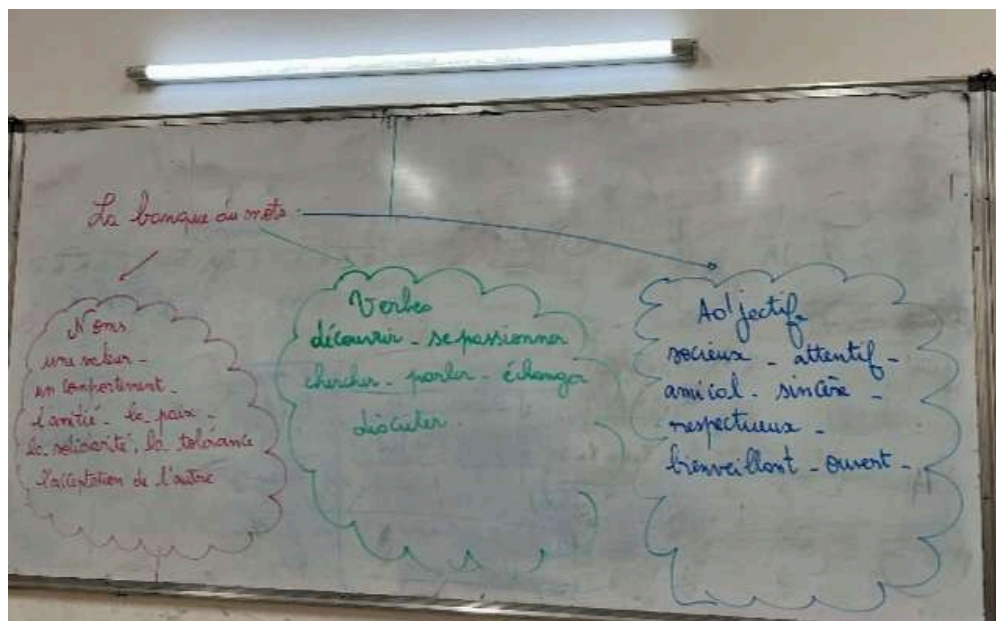 La banque du mots.
Noms
une valeur -
un comportement -
L'amitié - la paix -
la solidarité, la tolérance
l'acceptation de l'autre
Verbes
découvrir - se passionner
chercher - parler - échanger
discuter.
Adjectif
socieux - attentif -
amical - sincère -
respectueux -
bienveillant - ouvert -